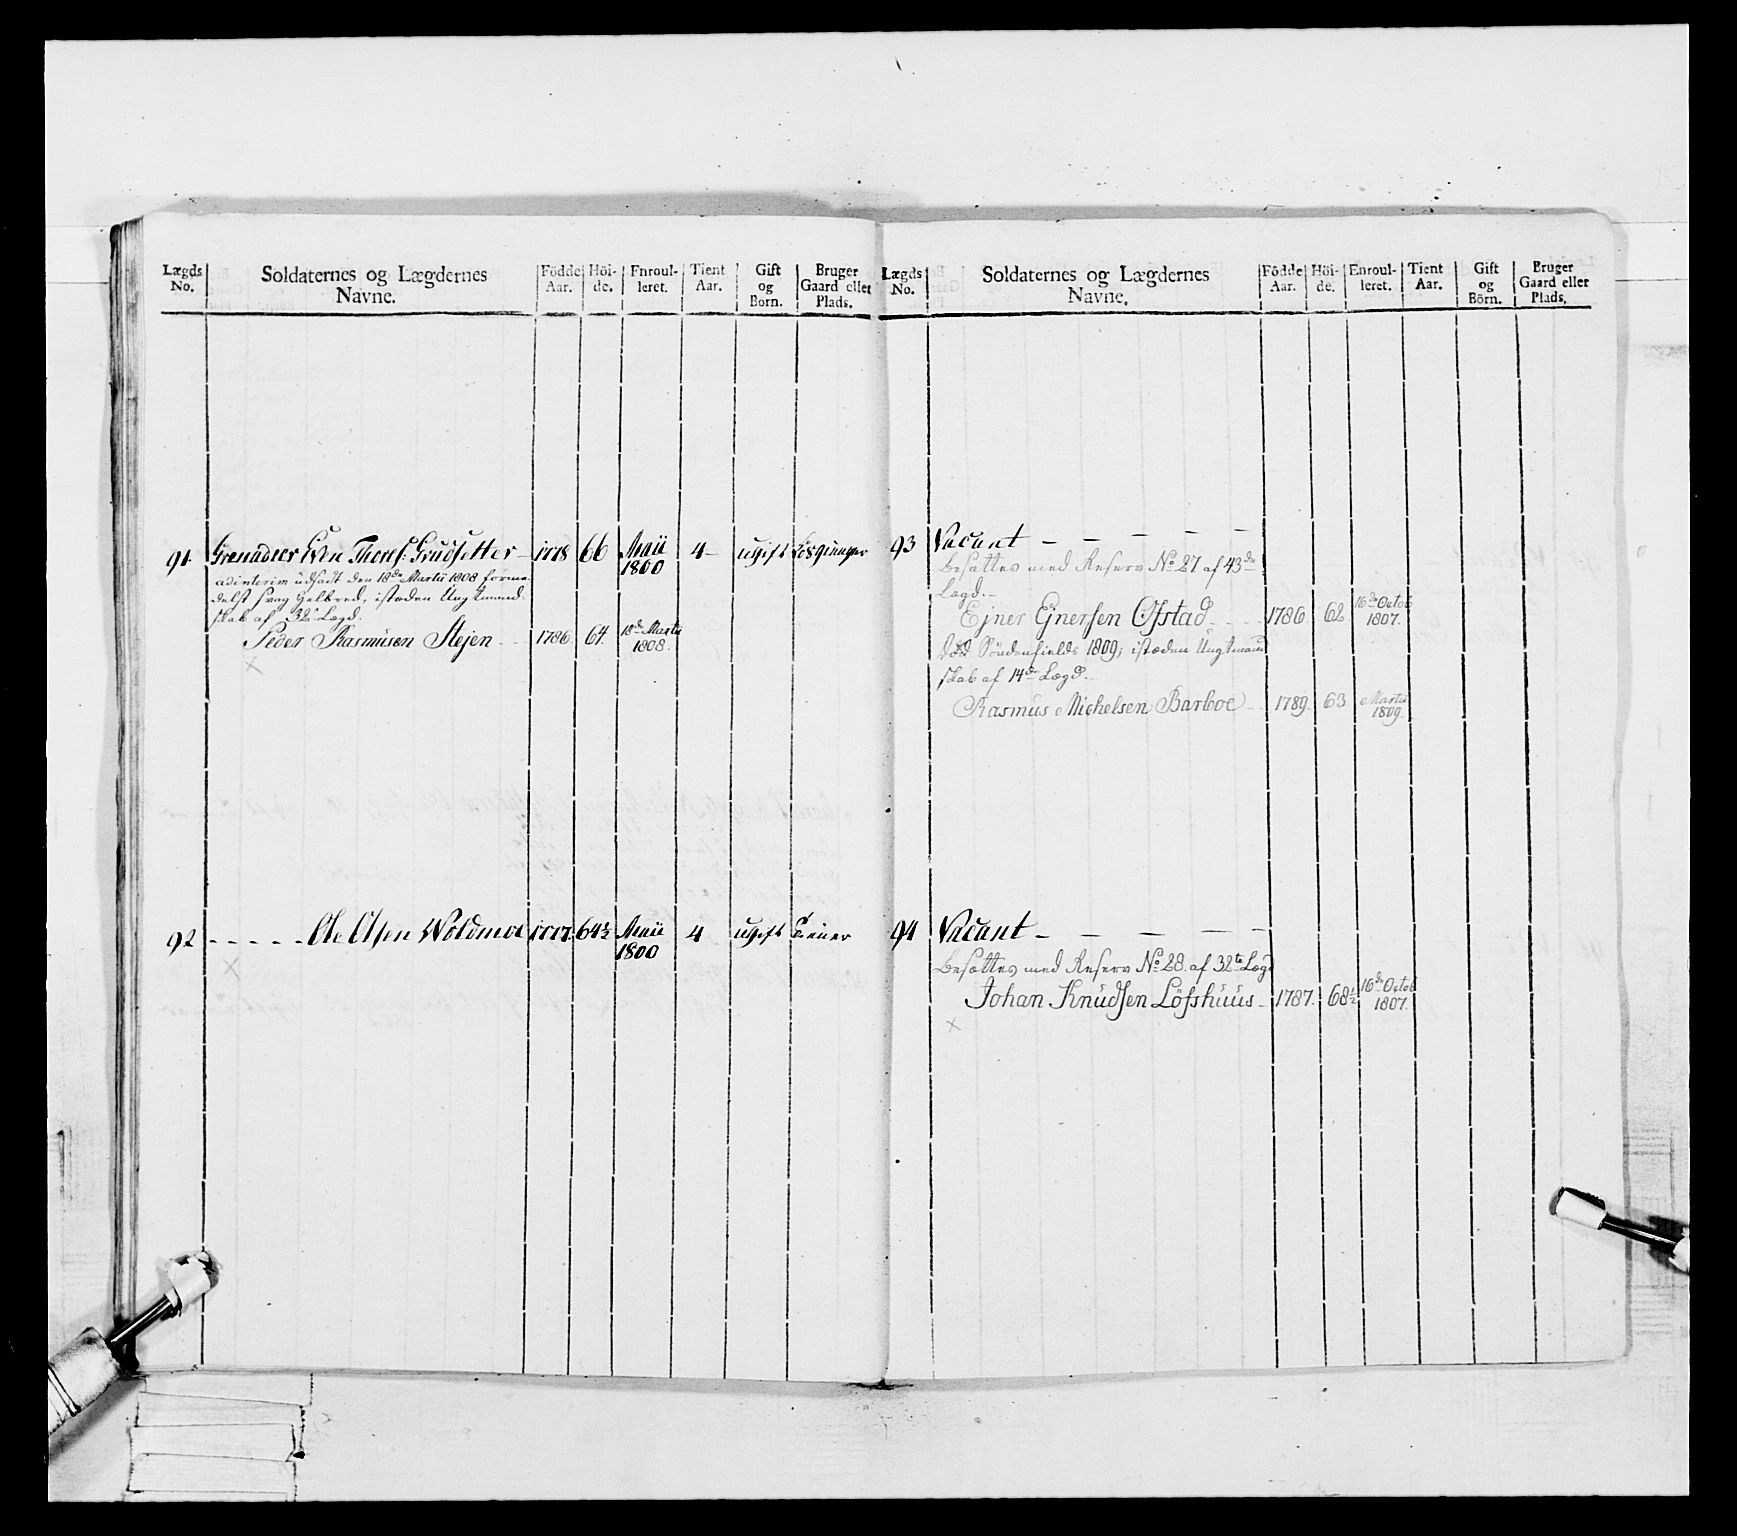 Lægds No. Soldaternes og Lægdernes Navne. Födde Aar. Höi-de. Enroul-leret. Tient Aar. Gift og Börn. Bruger Gaard eller Plads.
91. Grenadeer Iven Thoress: Grudsetter 1778 66 Maii 1800 4 ugift Løsgienger
adinterim udsadt den 18de Martii 1808 forme-
delst svag Helbred, istæden Ungtmand-
skab af 32te Lægd.
Peder Rasmusen Stejen 1786 64. 18de Martii 1808.
×
92 - - - - - Ole Olsen Woldmoe 1777. 64½ Maii 1800 4 ugift Tiener
×
Lægds No. Soldaternes og Lægdernes Navne. Födde Aar. Höi-de. Enroul-leret. Tient Aar. Gift og Börn. Bruger Gaard eller Plads.
93 Vacant — — — — —
Besættes med Reserv No 27 af 43de
Lægd.
Ejner Ejnersen Ofstad 1786 62 16de Octob 1807.
Død Söndenfields 1809, istæden Ungtmand
skab af 14de Lægd.
Rasmus Michelsen Barboe 1789. 63 Martii 1809.
94 Vacant — — — — —
Besættes med Reserv No 28. af 32te Lægd
Johan Knudsen Löfshuus 1787. 68½ 16de Octob 1807.
×